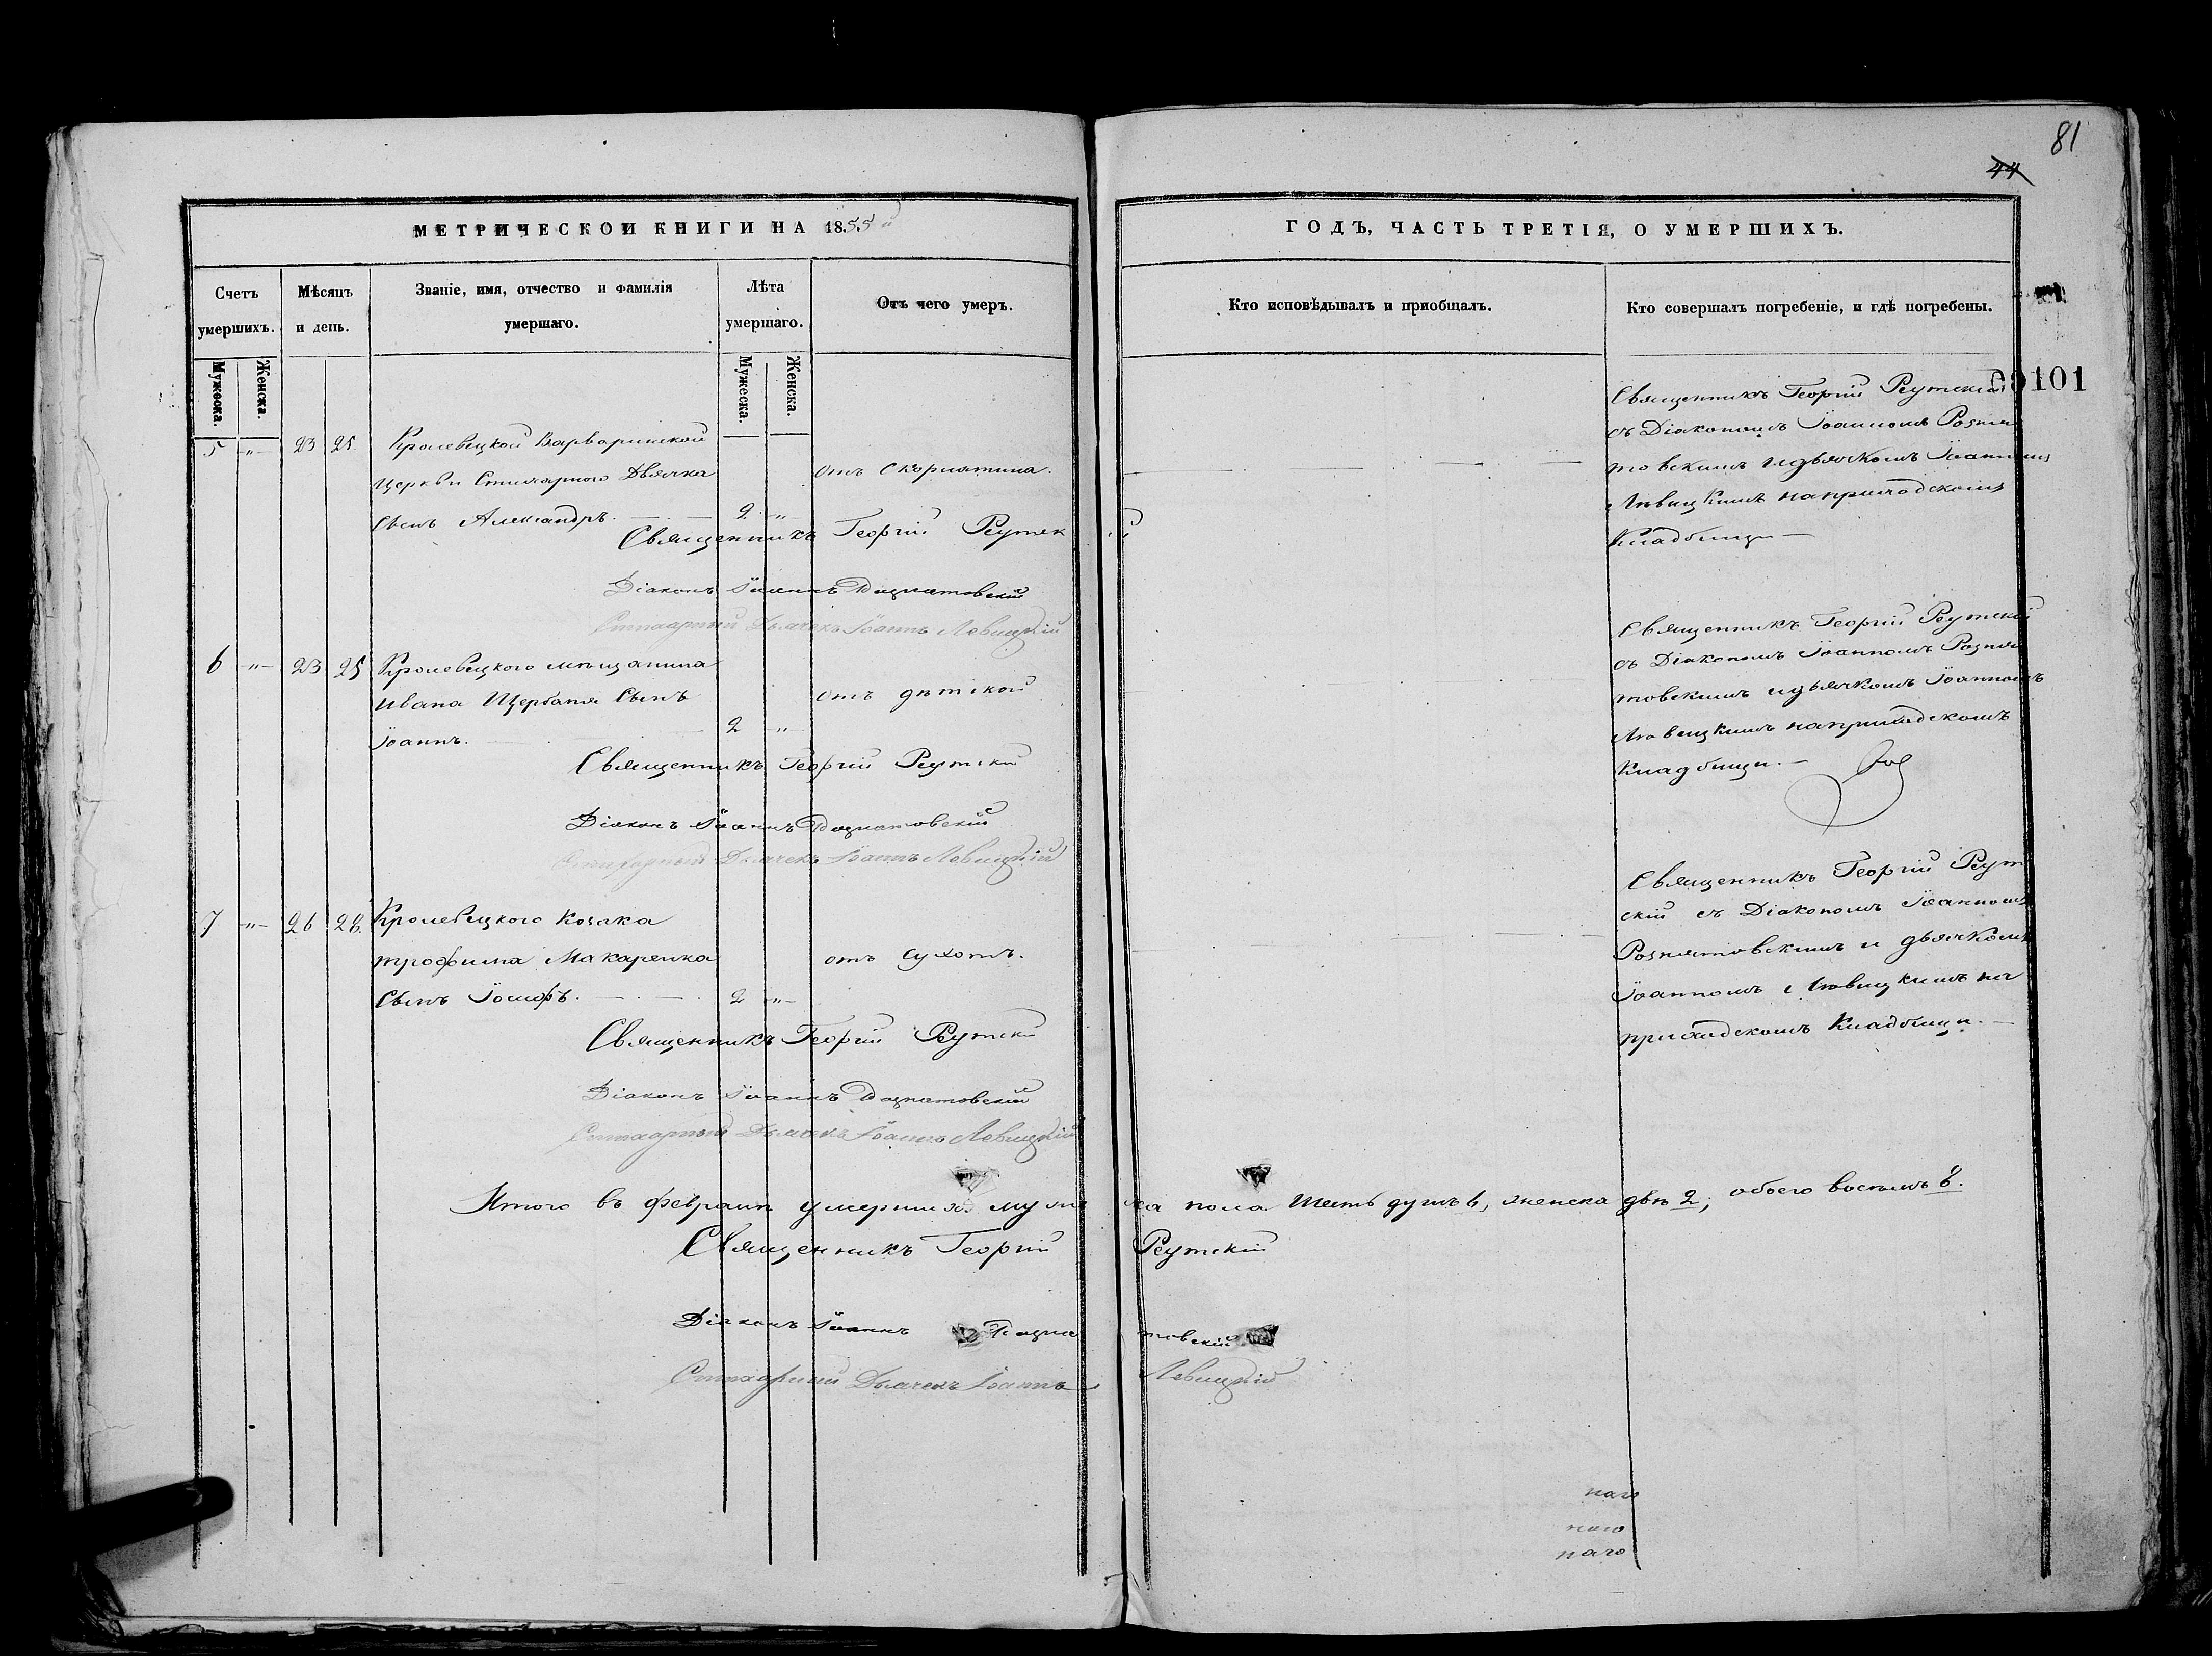 81
44
МЕТРИЧЕСКОЙ КНИГИ НА 1855й
ГОДЪ, ЧАСТЬ ТРЕТІЯ, О УМЕРШИХЪ.
Счетъ умершихъ.
Мѣсяцъ и день.
Званіе, имя, отчество и фамилія умершаго.
Лѣта умершаго.
Отъ чего умеръ.
Кто исповѣдывалъ и приобщалъ.
Кто совершалъ погребеніе, и гдѣ погребены.
Мужеска. Женска.
Мужеска. Женска.
101
5 -"- 23 25. Кролевецкой Варваринской
Церкви Стихарного Дьячка
Сынъ Александръ. 2 -"-
отъ скорлятина.
Священникъ Георгій Реутскій
съ Діакономъ Іоанномъ Розня
товскимъ и дьячкомъ Іоанномъ
Левицкимъ на приходскомъ
Кладбищи
Священникъ Георгій Реутскій
Діаконъ Іоаннъ Рознатовскій
Стихарный Дьячекъ Іоаннъ Левицкій
6 -"- 23 25 Кролевецкого мѣщанина
Ивана Щербаня Сынъ
Іоаннъ. 2 -"-
отъ дѣтской
Священникъ Георгій Реутской
съ Діакономъ Іоанномъ Розня
товскимъ и дьячкомъ Іоанномъ
Левицкимъ на приходскомъ
Кладбищи.
Священникъ Георгій Реутскій
Діаконъ Іоаннъ Рознатовскій
Стихарный Дьячекъ Іоаннъ Левицкій
7 -"- 26 28. Кролевецкого Козака
Трофима Макаренка
Сынъ Іосифъ. 2 -"-
отъ сухотъ.
Священникъ Георгій Реут
скій съ Діакономъ Іоанномъ
Рознятовскимъ и дьячкомъ
Іоанномъ Левицкимъ на
приходскомъ Кладбищи.
Священникъ Георгій Реутскій
Діаконъ Іоаннъ Рознатовскій
Стихарный Дьячекъ Іоаннъ Левицкій
Итого въ февралѣ умершихъ мужеска пола шесть душъ 6, женска двѣ 2, обоего восемь 8.
Священникъ Георгій Реутскій
Діаконъ Іоаннъ Рознатовскій
Стихарный Дьячекъ Іоаннъ Левицкій
наго
наго
наго